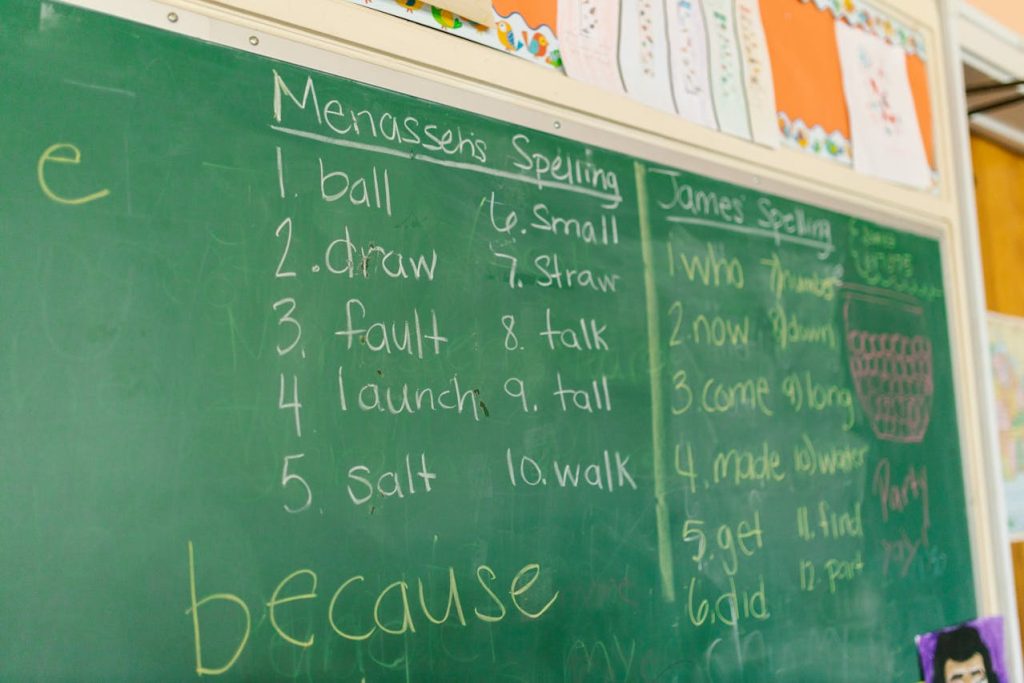 e
Menasseh's Spelling
1. ball
2. draw
3. fault
4 launch
5. salt
6. Small
7. Straw
8. talk
9. tall
10. walk
because
James' Spelling
1 who
2. now
3. come
4. made
5. get
6. did
7) number
8) down
9) long
10) water
11. find
12. part
Party
yay!